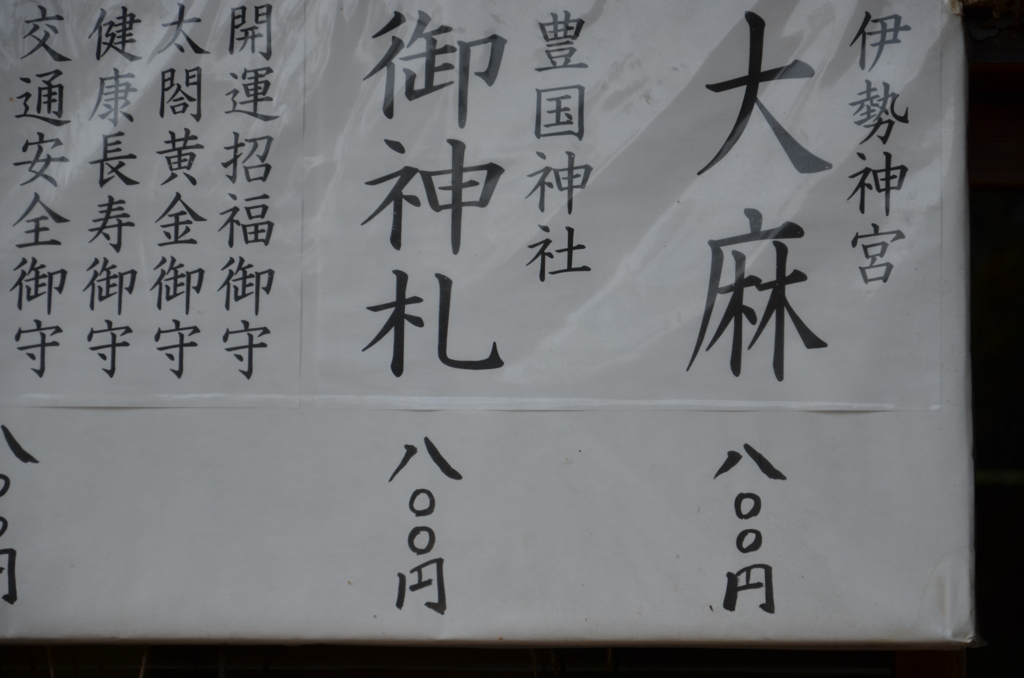 伊勢神宮
大麻
八〇〇円
豊国神社
御神札
八〇〇円
開運招福御守
太閤黄金御守
健康長寿御守
交通安全御守
八〇〇円